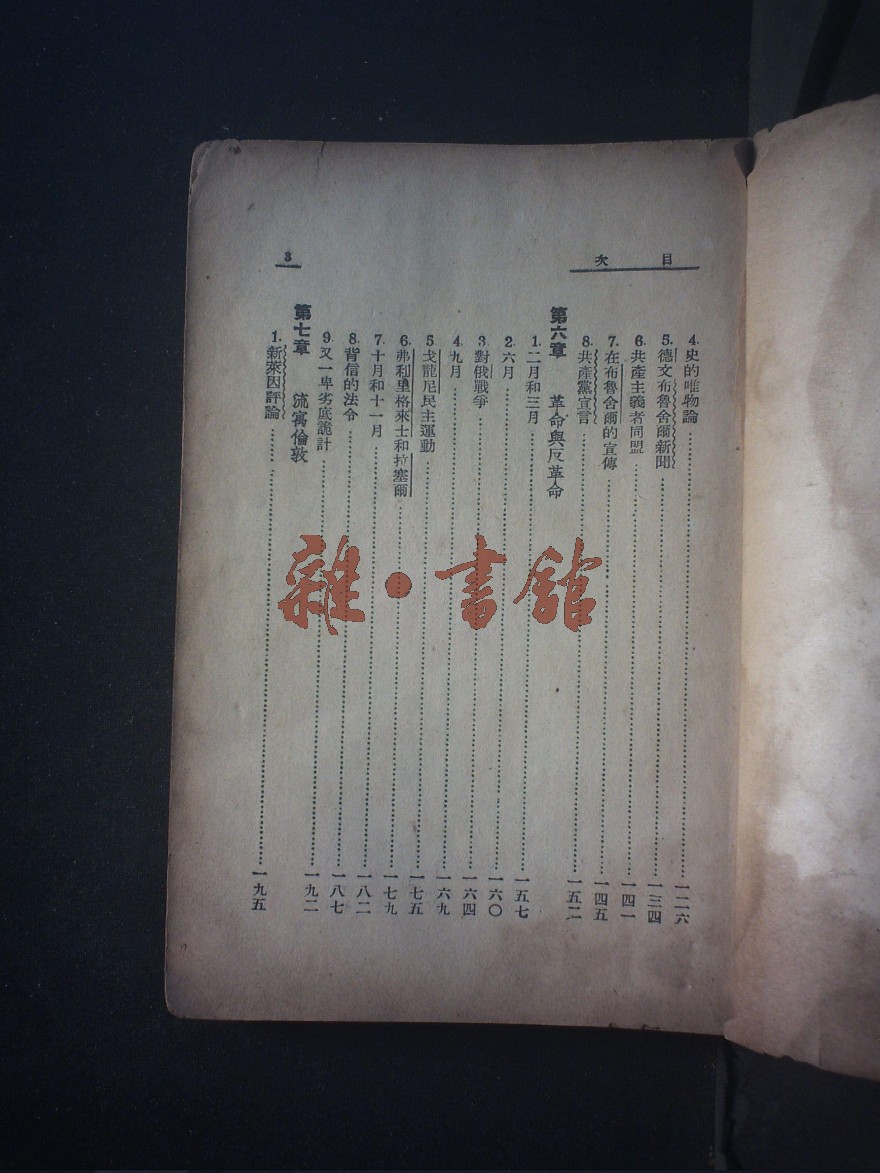 目次
3
4. 史的唯物論……一二六
5. 德文布魯舍爾新聞……一三四
6. 共產主義者同盟……一四一
7. 在布魯舍爾的宣傳……一四五
8. 共產黨宣言……一五二
第六章 革命與反革命
1. 二月和三月……一五七
2. 六月……一六〇
3. 對俄戰爭……一六四
4. 九月……一六九
5. 戈龍尼民主運動……一七五
6. 弗利里格來士和拉塞爾……一七九
7. 十月和十一月……一八二
8. 背信的法令……一八七
9. 又一卑劣底詭計……一九二
第七章 流寓倫敦
1. 新萊因評論……一九五
雜·書館